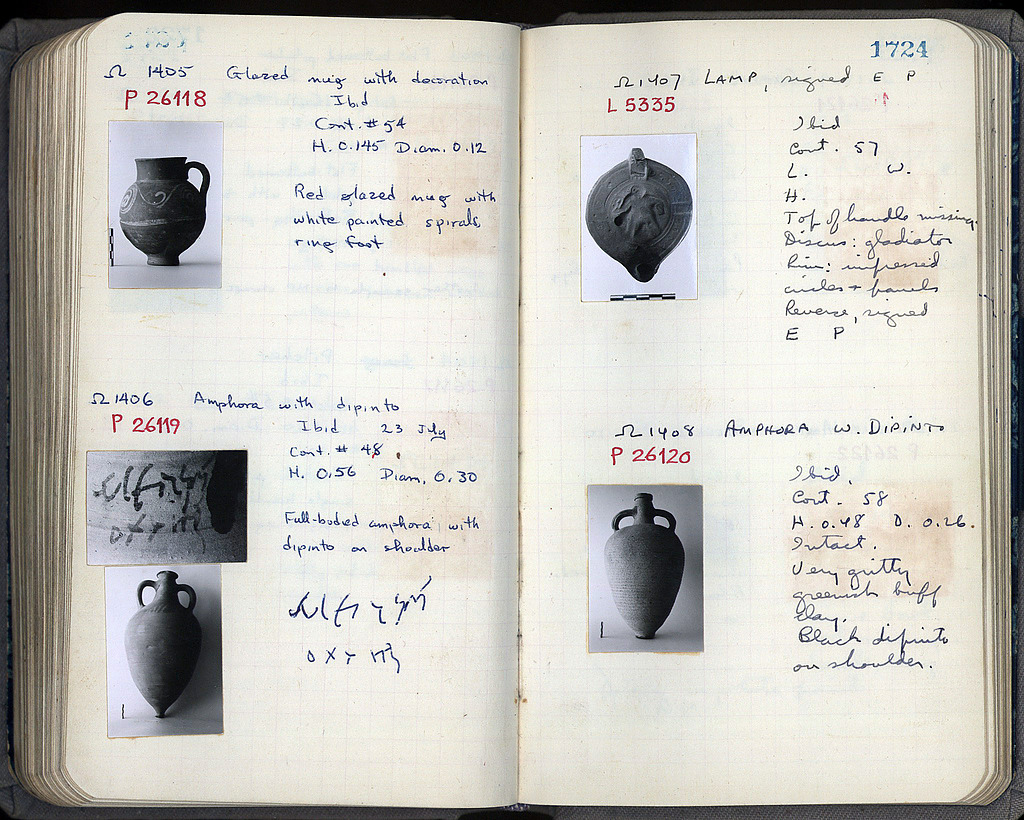 Ω 1405 Glazed mug with decoration
P 26118
Ibid
Cont. # 54
H. 0.145 Diam. 0.12
Red glazed mug with
white painted spirals,
ring foot
Ω 1406 Amphora with dipinto
P 26119
Ibid 23 July
Cont. # 48
H. 0.56 Diam. 0.30
Full-bodied amphora with
dipinto on shoulder
1724
Ω 1407 LAMP, signed E P
L 5335
Ibid
Cont. 57
L. W.
H.
Top of handle missing.
Discus: gladiator
Rim: impressed
circles + panels
Reverse, signed
E P
Ω 1408 AMPHORA W. DIPINTO
P 26120
Ibid.
Cont. 58
H. 0.48 D. 0.26.
Intact.
Very gritty
greenish buff
clay.
Black dipinto
on shoulder.